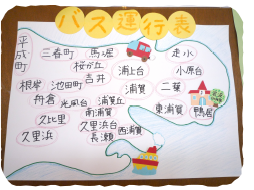 バス運行表
平成町
三春町
馬堀
走水
桜が丘
浦上台
小原台
根岸
池田町
吉井
浦賀
二葉
舟倉
光風台
浦賀丘
東浦賀
鴨居
久比里
南浦賀
久里浜
久里浜台
長瀬
西浦賀